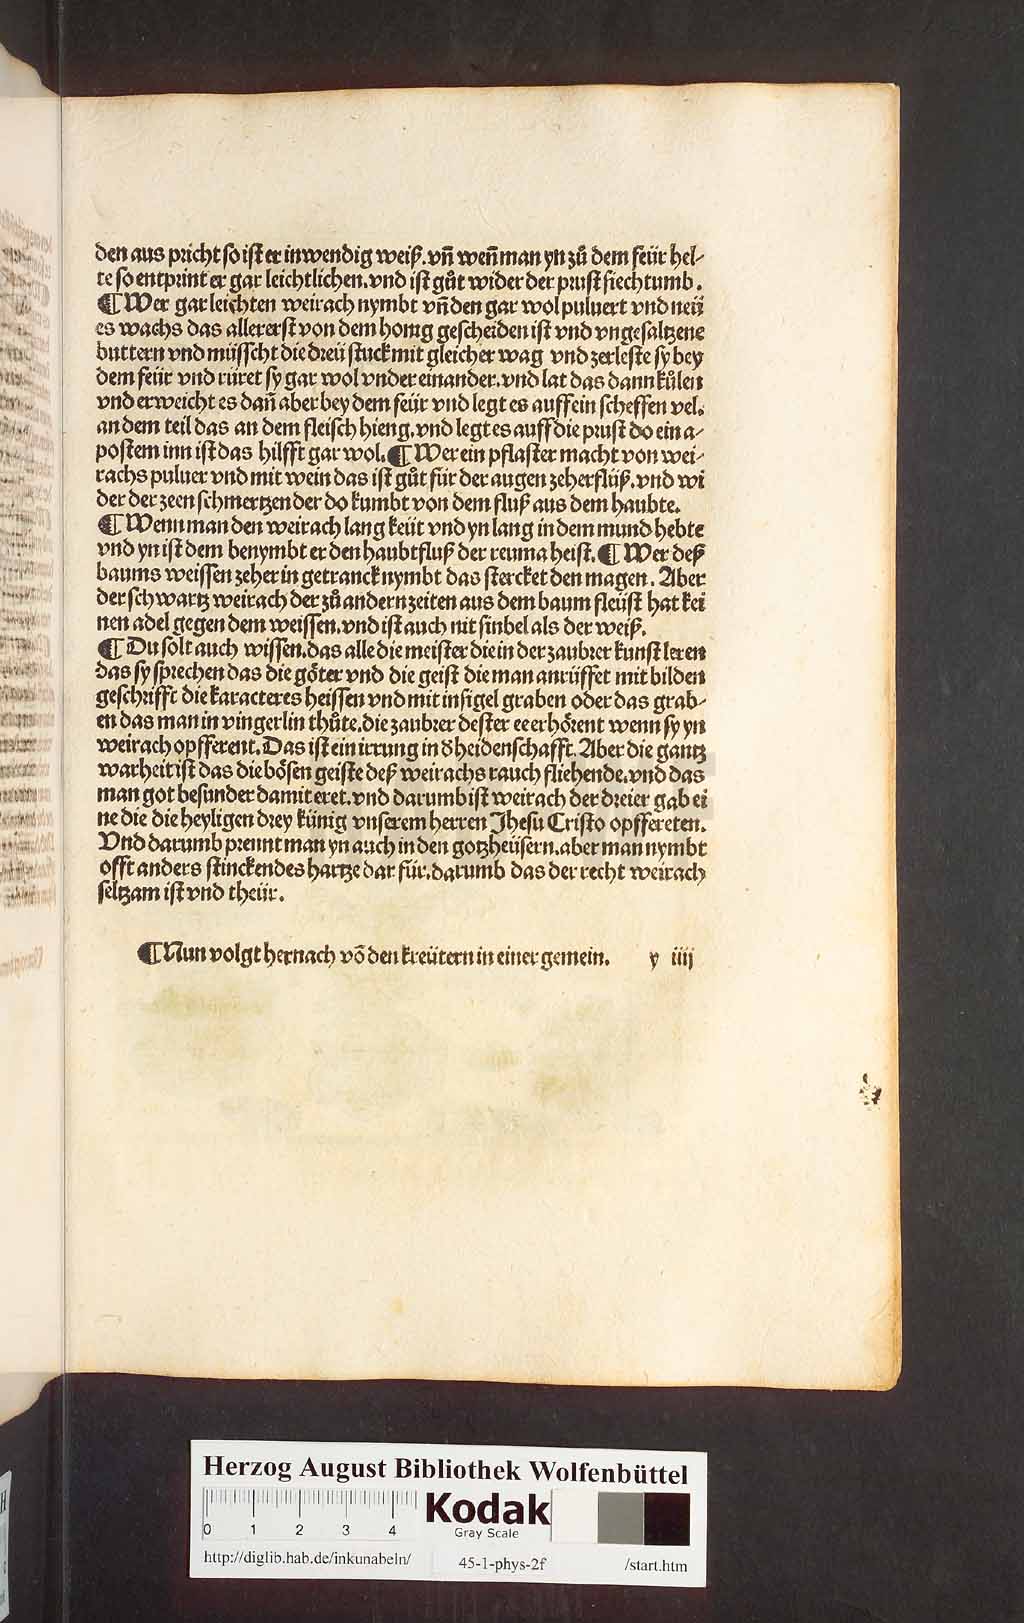 den aus pricht so ist er inwendig weiß. vn̄ wen̄ man yn zů dem feür hel⸗
te so entprint er gar leichtlichen. vnd ist gůt wider der prust siechtumb.
¶ Wer gar leichten weirach nymbt vn̄ den gar wol puluert vnd neü
es wachs das allererst von dem honig gescheiden ist vnd vngesaltzene
buttern vnd müsscht die dreü stuck mit gleicher wag vnd zerleste sy bey
dem feür vnd rüret sy gar wol vnder einander. vnd lat das dann külen
vnd erweicht es dan̄ aber bey dem feür vnd legt es auff ein scheffen vel.
an dem teil das an dem fleisch hieng. vnd legt es auff die prust do ein a⸗
postem inn ist das hilfft gar wol. ¶ Wer ein pflaster macht von wei⸗
rachs puluer vnd mit wein das ist gůt für der augen zeherflüß. vnd wi
der der zeen schmertzen der do kumbt von dem fluß aus dem haubte.
¶ Wenn man den weirach lang keüt vnd yn lang in dem mund hebte
vnd yn ist dem benymbt er den haubtfluß der reuma heist. ¶ Wer deß
baums weissen zeher in getranck nymbt das stercket den magen. Aber
der schwartz weirach der zů andern zeiten aus dem baum fleüst hat kei
nen adel gegen dem weissen. vnd ist auch nit sinbel als der weiß.
¶ Du solt auch wissen. das alle die meister die in der zaubrer kunst leren
das sy sprechen das die göter vnd die geist die man anrüffet mit bilden
geschrifft die karacteres heissen vnd mit insigel graben oder das grab⸗
en das man in vingerlin thůte. die zaubrer dester ee erhörent wenn sy yn
weirach opfferent. Das ist ein irrung in d̄ heidenschafft. Aber die gantz
warheit ist das die bösen geiste deß weirachs rauch fliehende. vnd das
man got besunder damit eret. vnd darumb ist weirach der dreier gab ei
ne die die heyligen drey künig vnserem herren Jhesu Cristo opffereten.
Vnd darumb prennt man yn auch in den gotzheüsern. aber man nymbt
offt anders stinckendes hartze dar für. darumb das der recht weirach
seltzam ist vnd theür.
¶ Nun volgt hernach vō den kreütern in einer gemein. y iiij
Herzog August Bibliothek Wolfenbüttel
0 1 2 3 4 Kodak
Gray Scale
http://diglib.hab.de/inkunabeln/ 45-1-phys-2f /start.htm